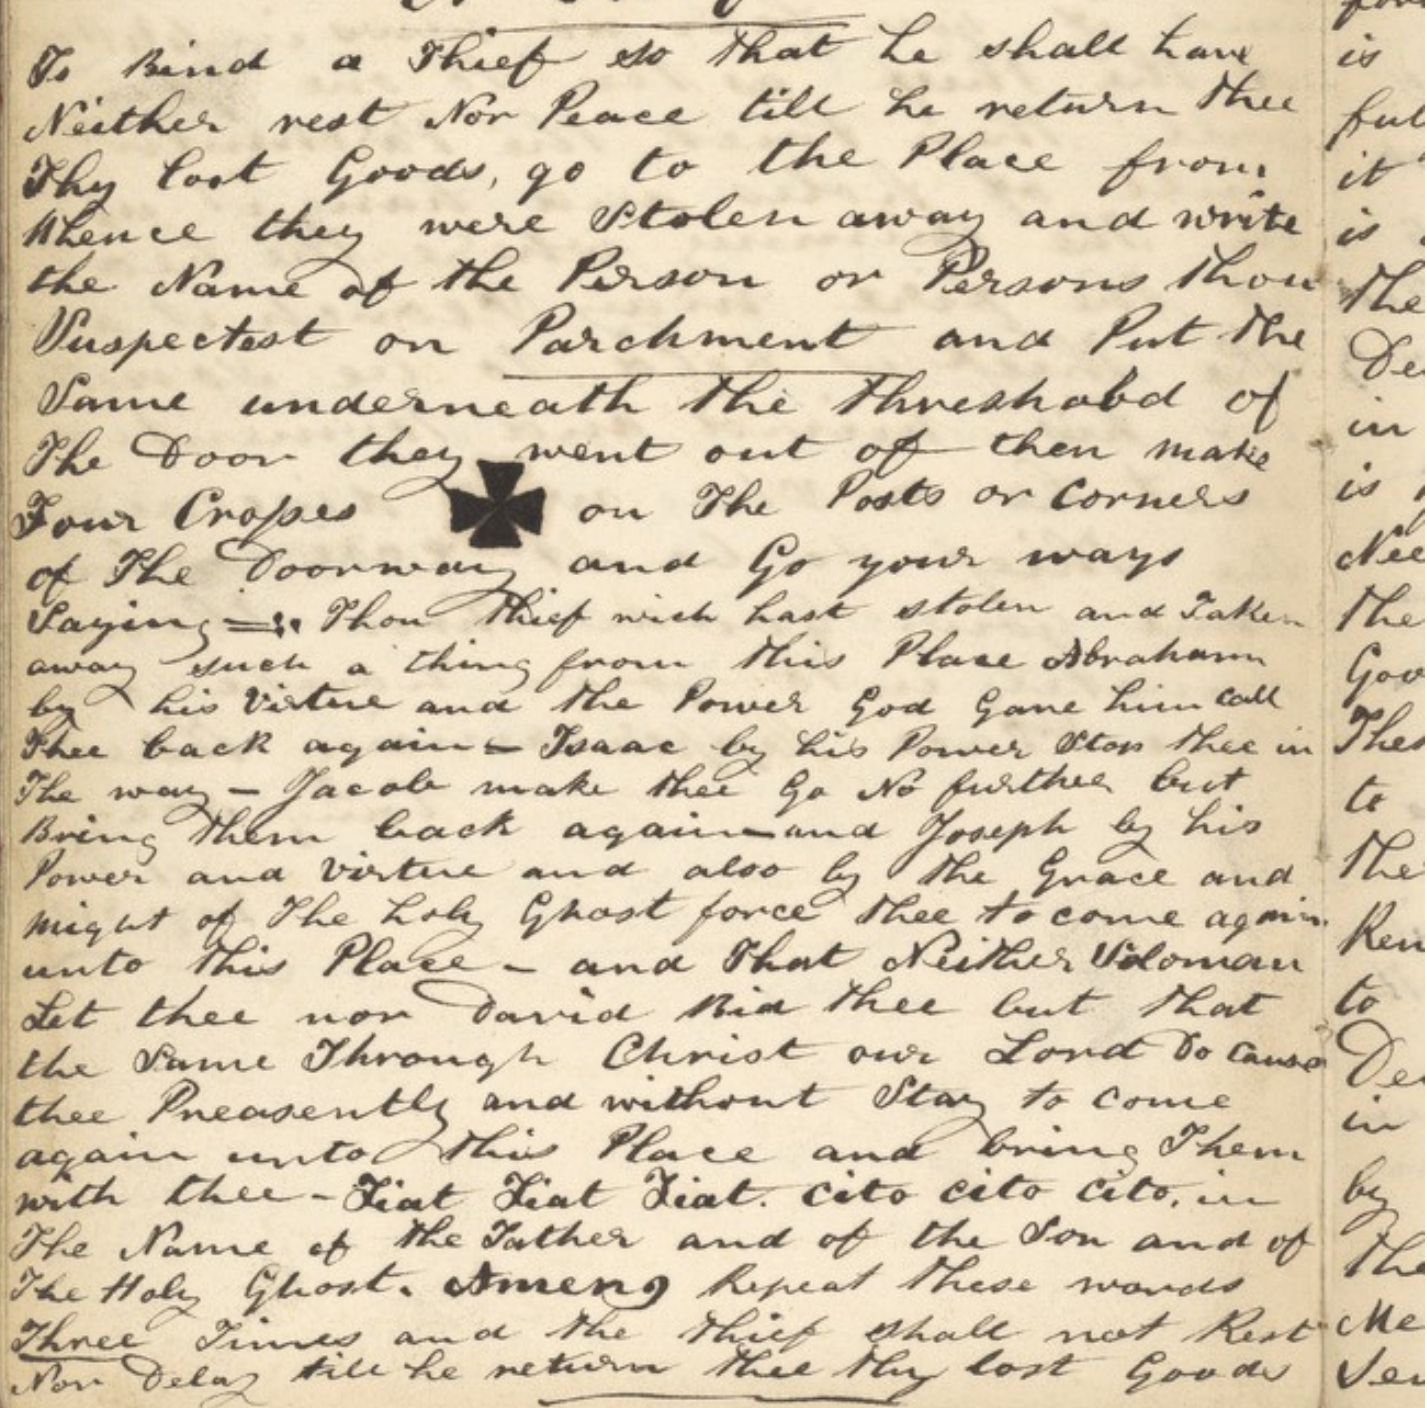 To Bind a Thief so that he shall have
Neither rest Nor Peace till he return thee
Thy lost Goods, go to the Place from
Whence they were Stolen away and write
the Name of the Person or Persons thou
Suspectest on Parchment and Put the
Same underneath the threshold of
The Door they went out of then make
Four Crosses ✠ on The Posts or Corners
of The Doorway and Go your ways
Saying Thou thief wich hast stolen and Taken
away such a thing from this Place Abraham
by his Virtue and the Power God Gave him call
Thee back again - Isaac by his Power Stop thee in
The way - Jacob make thee Go No further but
Bring them back again - and Joseph by his
Power and Virtue and also by the Grace and
might of The holy Ghost force thee to come again
unto this Place - and That Neither Soloman
Let thee nor David Bid thee but that
the Same Through Christ our Lord Do Cause
thee Preasently and without Stay to come
again unto this Place and bring Them
with thee - Fiat Fiat Fiat. Cito Cito Cito. in
The Name of the Father and of the Son and of
The Holy Ghost. Amen Repeat these words
Three Times and the thief shall not Rest
Nor Delay till he return thee thy lost Goods
is
it
is
the
in
is
the
to
the
to
in
by
the